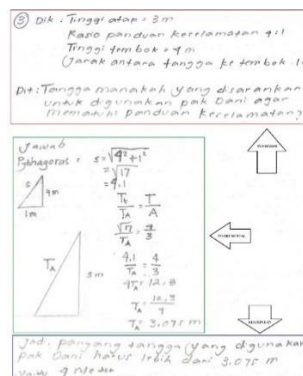 ③ Dik : Tinggi atap = 3 m
Rasio panduan keselamatan 4:1
Tinggi tembok = 4 m
Jarak antara tangga ke tembok
Dit : Tangga manakah yang disarankan
untuk digunakan pak Dani agar
mematuhi panduan keselamatan?
Jawab
Pythagoras : s = √4² + 1²
= √17
= 4,1
s
4m
1m
T_t/T_A = T/A
√17/T_A = 4/3
4,1/T_A = 4/3
4T_A = 12,3
T_A = 12,3/4
T_A = 3,075 m
T_A
3m
Jadi, panjang tangga yang digunakan
pak Dani harus lebih dari 3,075 m
yaitu 4 Meter